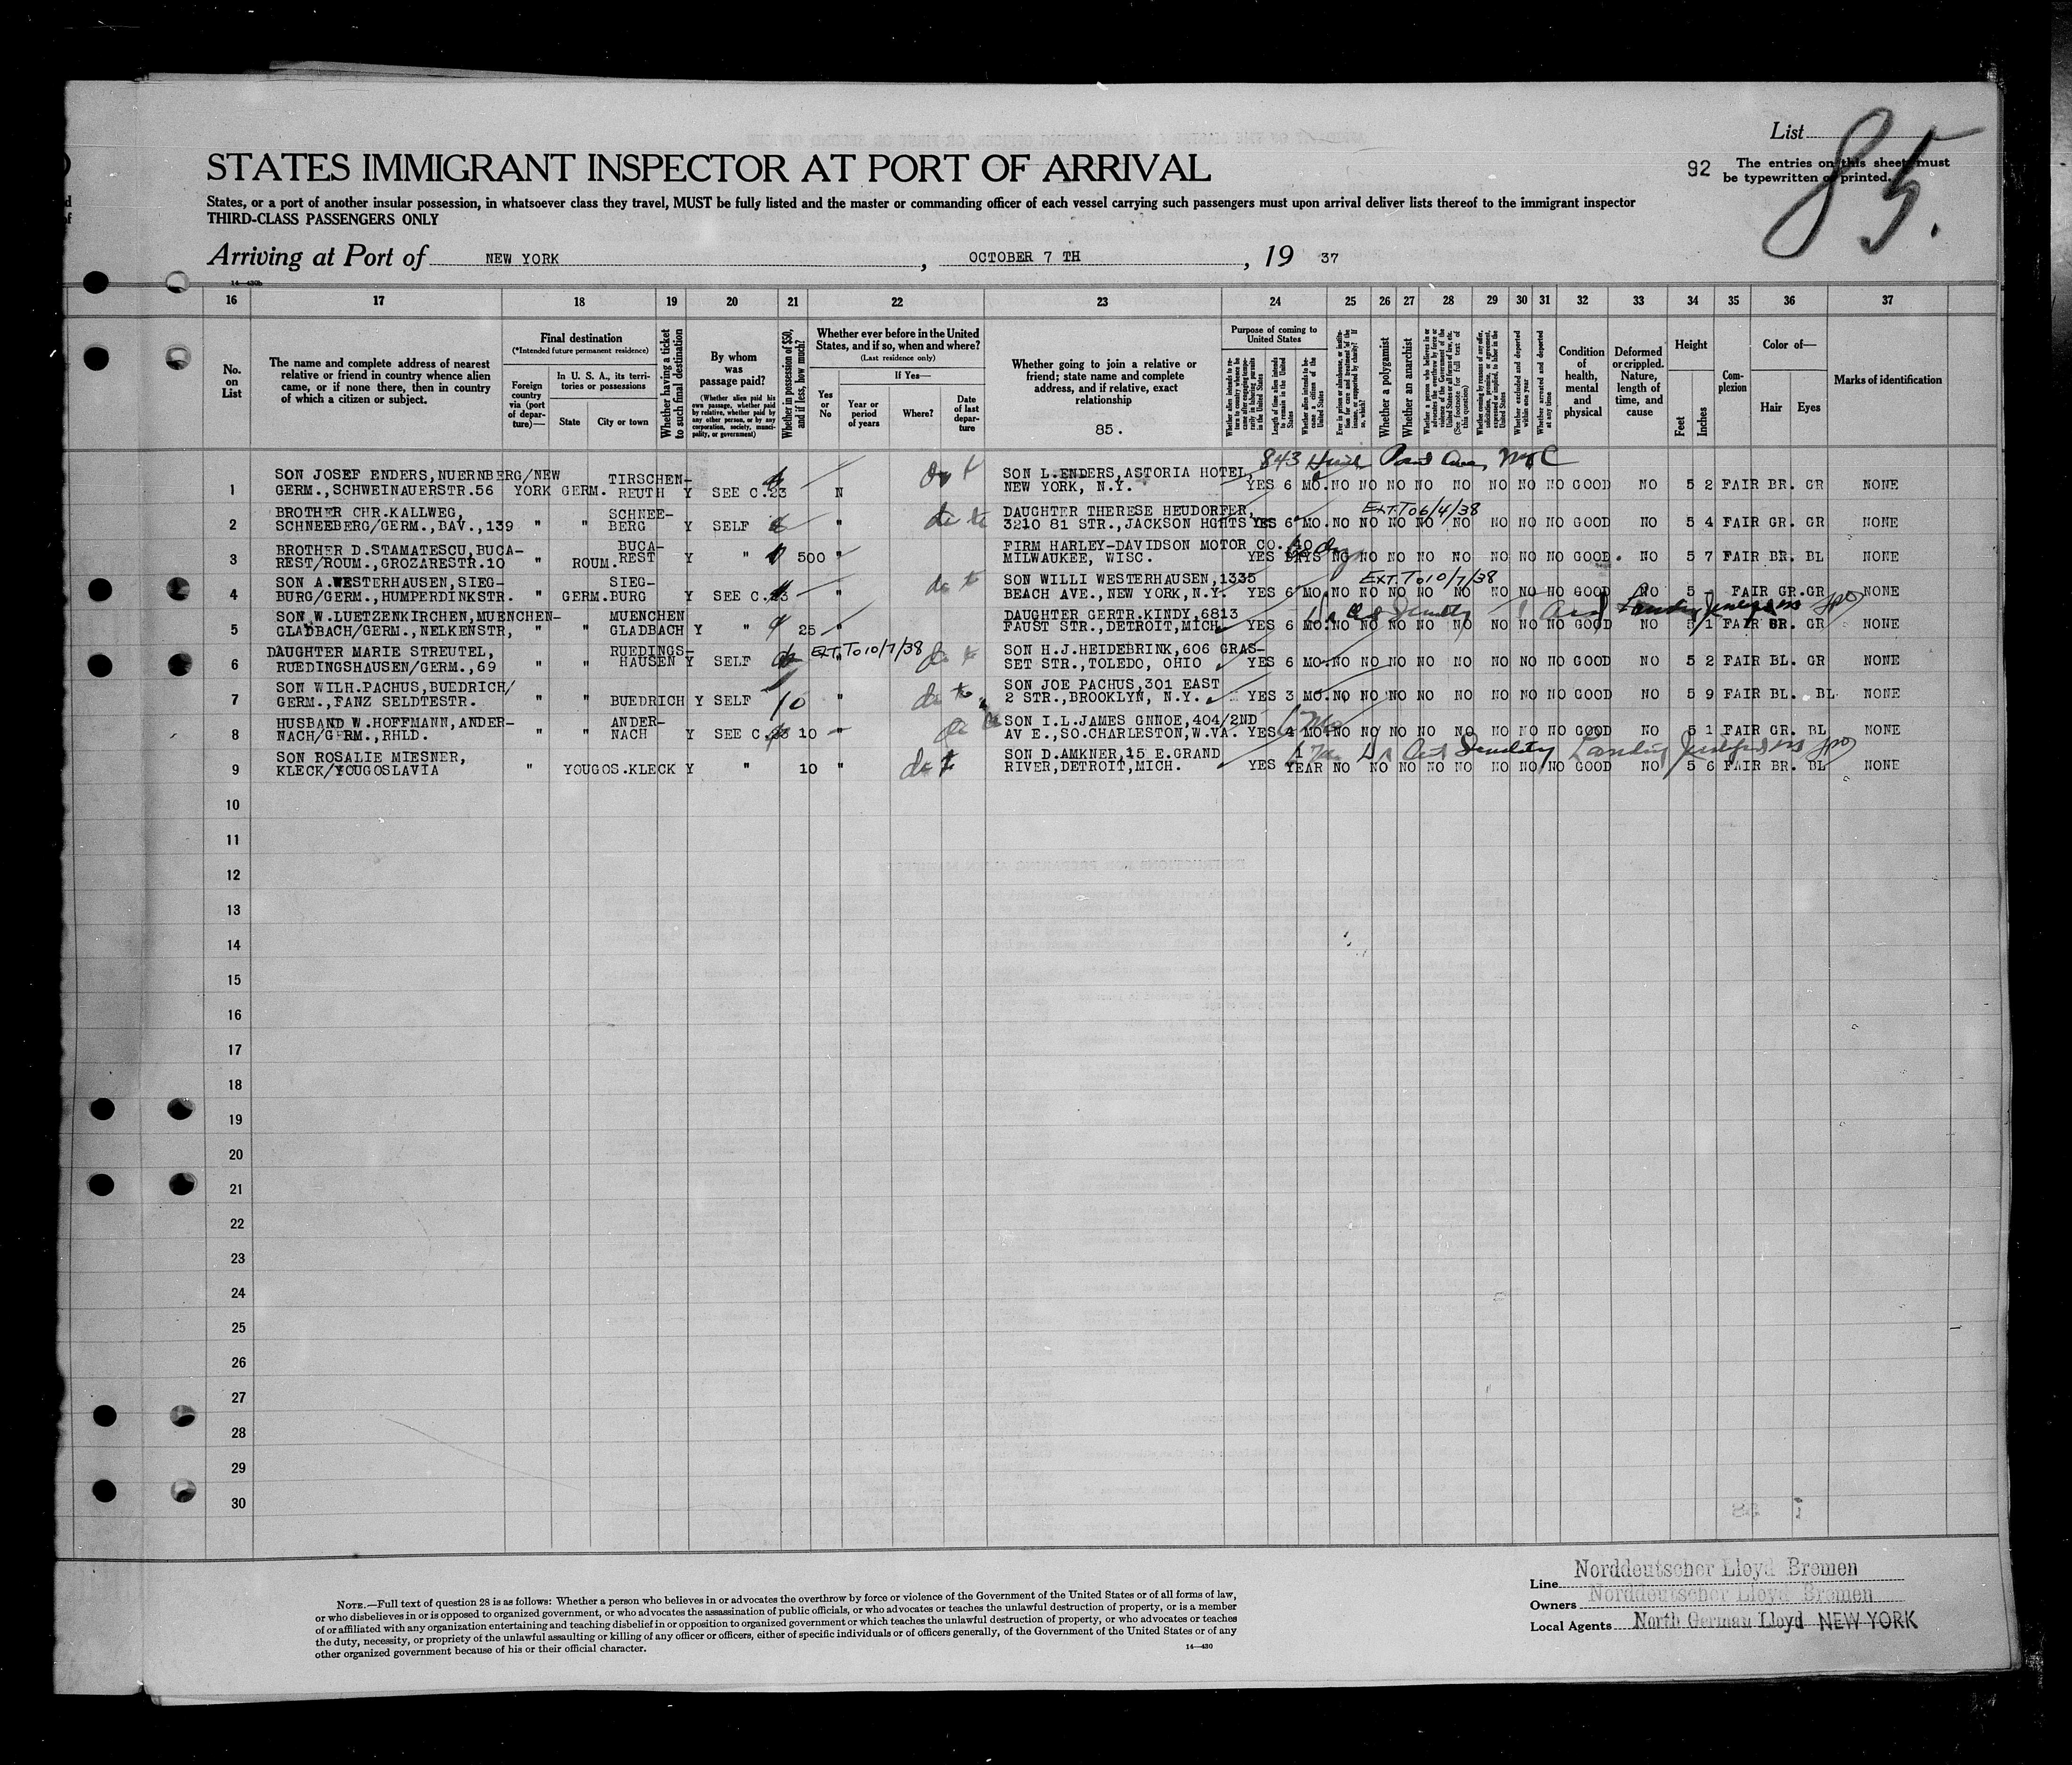 List
85.
92 The entries on this sheet must
be typewritten or printed.
STATES IMMIGRANT INSPECTOR AT PORT OF ARRIVAL
States, or a port of another insular possession, in whatsoever class they travel, MUST be fully listed and the master or commanding officer of each vessel carrying such passengers must upon arrival deliver lists thereof to the immigrant inspector
THIRD-CLASS PASSENGERS ONLY
Arriving at Port of NEW YORK, OCTOBER 7 TH, 19 37
14—430b
16 17 18 19 20 21 22 23 24 25 26 27 28 29 30 31 32 33 34 35 36 37
No. on List
The name and complete address of nearest
relative or friend in country whence alien
came, or if none there, then in country
of which a citizen or subject.
Final destination
(*Intended future permanent residence)
Foreign country via (port of departure)—
In U. S. A., its territories or possessions
State City or town
Whether having a ticket to such final destination
By whom was passage paid?
(Whether alien paid his own passage, whether paid by relative, whether paid by any other person, or by any corporation, society, municipality, or government)
Whether in possession of $50, and if less, how much?
Whether ever before in the United States, and if so, when and where?
(Last residence only)
Yes or No
If Yes—
Year or period of years
Where?
Date of last departure
Whether going to join a relative or
friend; state name and complete
address, and if relative, exact
relationship
85.
Purpose of coming to United States
Length of time alien intends to remain in the United States
Whether alien intends to become a citizen of the United States
Whether a polygamist
Whether an anarchist
Whether excluded and deported within one year
Whether arrested and deported at any time
Condition of health, mental and physical
Deformed or crippled. Nature, length of time, and cause
Height
Feet Inches
Complexion
Color of—
Hair Eyes
Marks of identification
843 NYC
SON JOSEF ENDERS, NUERNBERG/NEW TIRSCHEN- SON L.ENDERS, ASTORIA HOTEL,
1 GERM.,SCHWEINAUERSTR.56 YORK GERM. REUTH Y SEE C.23 N NEW YORK, N.Y. YES 6 MO. NO NO NO NO NO NO NO NO GOOD NO 5 2 FAIR BR. GR NONE
BROTHER CHR.KALLWEG, SCHNEE- DAUGHTER THERESE HEUDORFER, EXT. TO 6/4/38
2 SCHNEEBERG/GERM.,BAV.,139 " " BERG Y SELF " 3210 81 STR.,JACKSON HGHTS YES 6 MO. NO NO NO NO NO NO NO NO GOOD NO 5 4 FAIR GR. GR NONE
BROTHER D.STAMATESCU, BUCA- BUCA- FIRM HARLEY-DAVIDSON MOTOR CO. 40
3 REST/ROUM.,GROZARESTR.10 " ROUM. REST Y " 500 " MILWAUKEE, WISC. YES DAYS NO NO NO NO NO NO NO NO GOOD. NO 5 7 FAIR BR. BL NONE
SON A.WESTERHAUSEN, SIEG- SIEG- SON WILLI WESTERHAUSEN, 1335 EXT. TO 10/7/38
4 BURG/GERM.,HUMPERDINKSTR. " GERM. BURG Y SEE C.23 " BEACH AVE.,NEW YORK,N.Y. YES 6 MO. NO NO NO NO NO NO NO NO GOOD NO 5 - FAIR GR. GR NONE
SON W.LUETZENKIRCHEN, MUENCHEN- MUENCHEN DAUGHTER GERTR.KINDY, 6813
5 GLADBACH/GERM.,NELKENSTR, " " GLADBACH Y " 25 " FAUST STR.,DETROIT,MICH. YES 6 MO. NO NO NO NO NO NO NO NO GOOD NO 5 1 FAIR BR. GR NONE
DAUGHTER MARIE STREUTEL, RUEDINGS- EXT. TO 10/7/38 SON H.J.HEIDEBRINK, 606 GRAS-
6 RUEDINGSHAUSEN/GERM.,69 " " HAUSEN Y SELF " SET STR.,TOLEDO, OHIO YES 6 MO. NO NO NO NO NO NO NO NO GOOD NO 5 2 FAIR BL. GR NONE
SON WILH.PACHUS, BUEDRICH/ SON JOE PACHUS, 301 EAST
7 GERM.,FANZ SELDTESTR. " " BUEDRICH Y SELF 10 " 2 STR.,BROOKLYN, N.Y. YES 3 MO. NO NO NO NO NO NO NO NO GOOD NO 5 9 FAIR BL. BL NONE
HUSBAND W.HOFFMANN, ANDER- ANDER- SON I.L.JAMES GNNOE, 404/2ND 6 Mo
8 NACH/GERM.,RHLD. " " NACH Y SEE C.23 10 " AV E.,SO.CHARLESTON,W.VA. YES 4 MO. NO NO NO NO NO NO NO NO GOOD NO 5 1 FAIR GR. BL NONE
SON ROSALIE MIESNER, SON D.AMKNER, 15 E.GRAND
9 KLECK/YOUGOSLAVIA " YOUGOS. KLECK Y " 10 " RIVER,DETROIT,MICH. YES YEAR NO NO NO NO NO NO NO NO GOOD NO 5 6 FAIR BR. BL NONE
10
11
12
13
14
15
16
17
18
19
20
21
22
23
24
25
26
27
28
29
30
NOTE.—Full text of question 28 is as follows: Whether a person who believes in or advocates the overthrow by force or violence of the Government of the United States or of all forms of law,
or who disbelieves in or is opposed to organized government, or who advocates the assassination of public officials, or who advocates or teaches the unlawful destruction of property, or is a member
of or affiliated with any organization entertaining and teaching disbelief in or opposition to organized government or which teaches the unlawful destruction of property, or who advocates or teaches
the duty, necessity, or propriety of the unlawful assaulting or killing of any officer or officers, either of specific individuals or of officers generally, of the Government of the United States or of any
other organized government because of his or their official character.
14—430
Line Norddeutscher Lloyd Bremen
Owners Norddeutscher Lloyd Bremen
Local Agents North German Lloyd NEW YORK